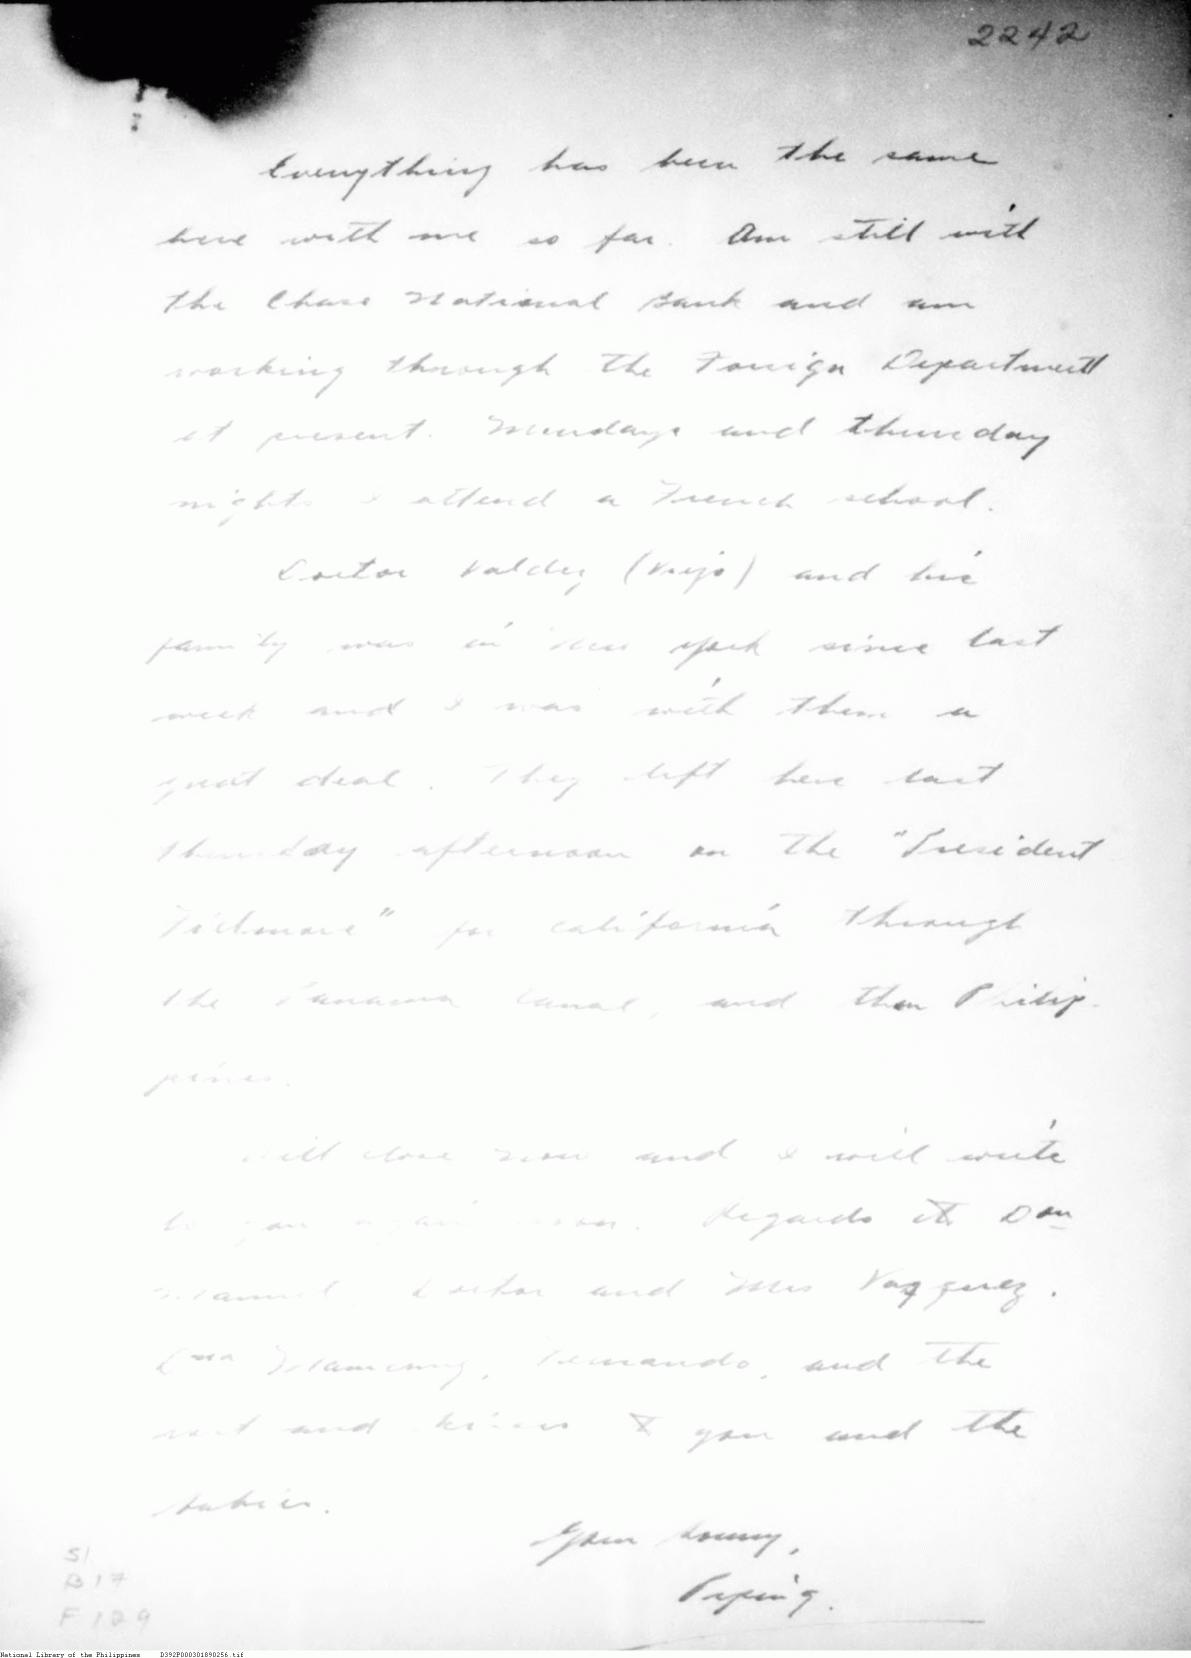 2242
Everything has been the same
here with me so far. Am still with
the Chase National Bank and am
working through the Foreign Department
at present. Mondays and thursday
nights I attend a French school.
Doctor Valdez (Viejo) and his
family was in New York since last
week and I was with them a
great deal. They left here last
thursday afternoon on the "President
Fillmore" for California through
the Panama Canal, and then Philip-
pines.
Will close now and I will write
to you again soon. Regards to Don
Manuel, Doctor and Mrs Vazquez.
Dña Mameng, Fernando, and the
rest and kisses to you and the
babies.
Your Sonny,
Peping.
S1
B17
F 129
National Library of the Philippines D392P000301890256.tif